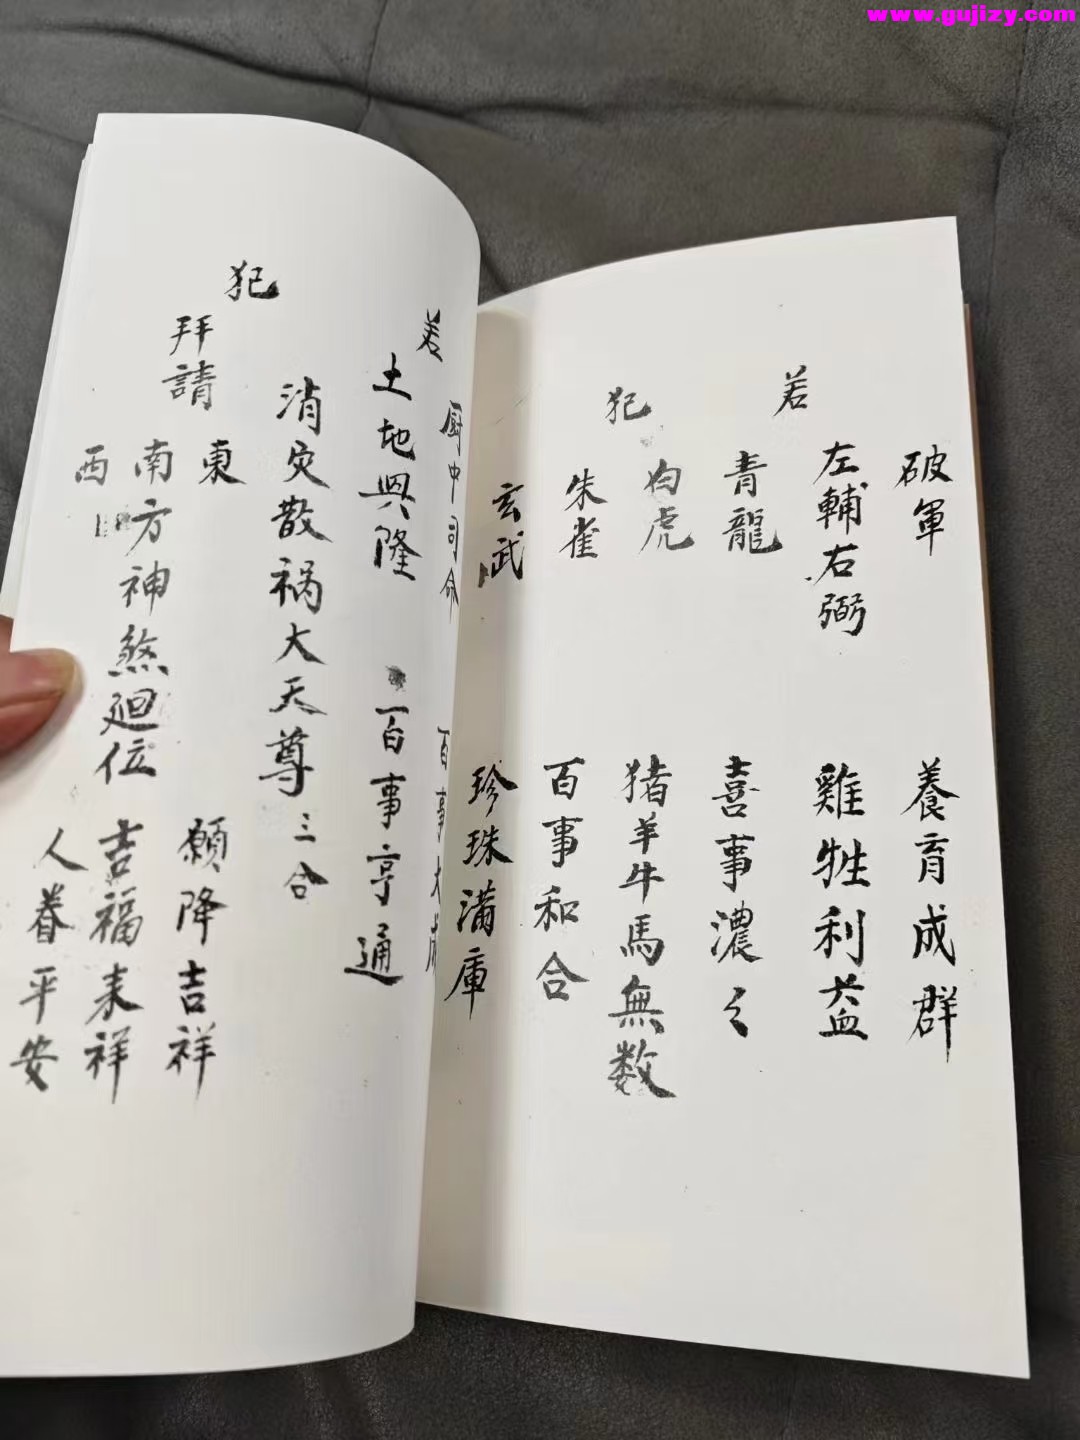 www.gujizy.com
破軍 養育成群
左輔右弼 雞牲利益
若
青龍 喜事濃々
白虎 猪羊牛馬無数
犯
朱雀 百事和合
玄武 珍珠滿庫
厨中司命 百事大
若
土地興隆 百事亨通
消灾散祸大天尊 三合
犯
東 願降吉祥
拜請
南方神煞廻位 吉福来祥
西 人眷平安